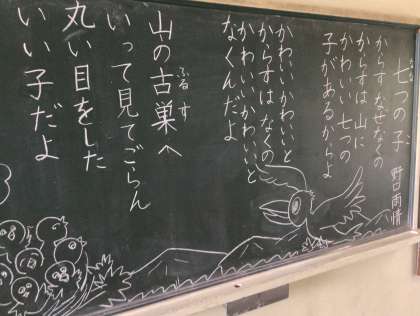 七つの子
野口雨情
からすなぜなくの
からすは山に
かわいい 七つの
子があるからよ
かわいかわいと
からすはなくの
かわいかわいと
なくんだよ
山の古巣へ
ふるす
いって見てごらん
丸い目をした
いい子だよ